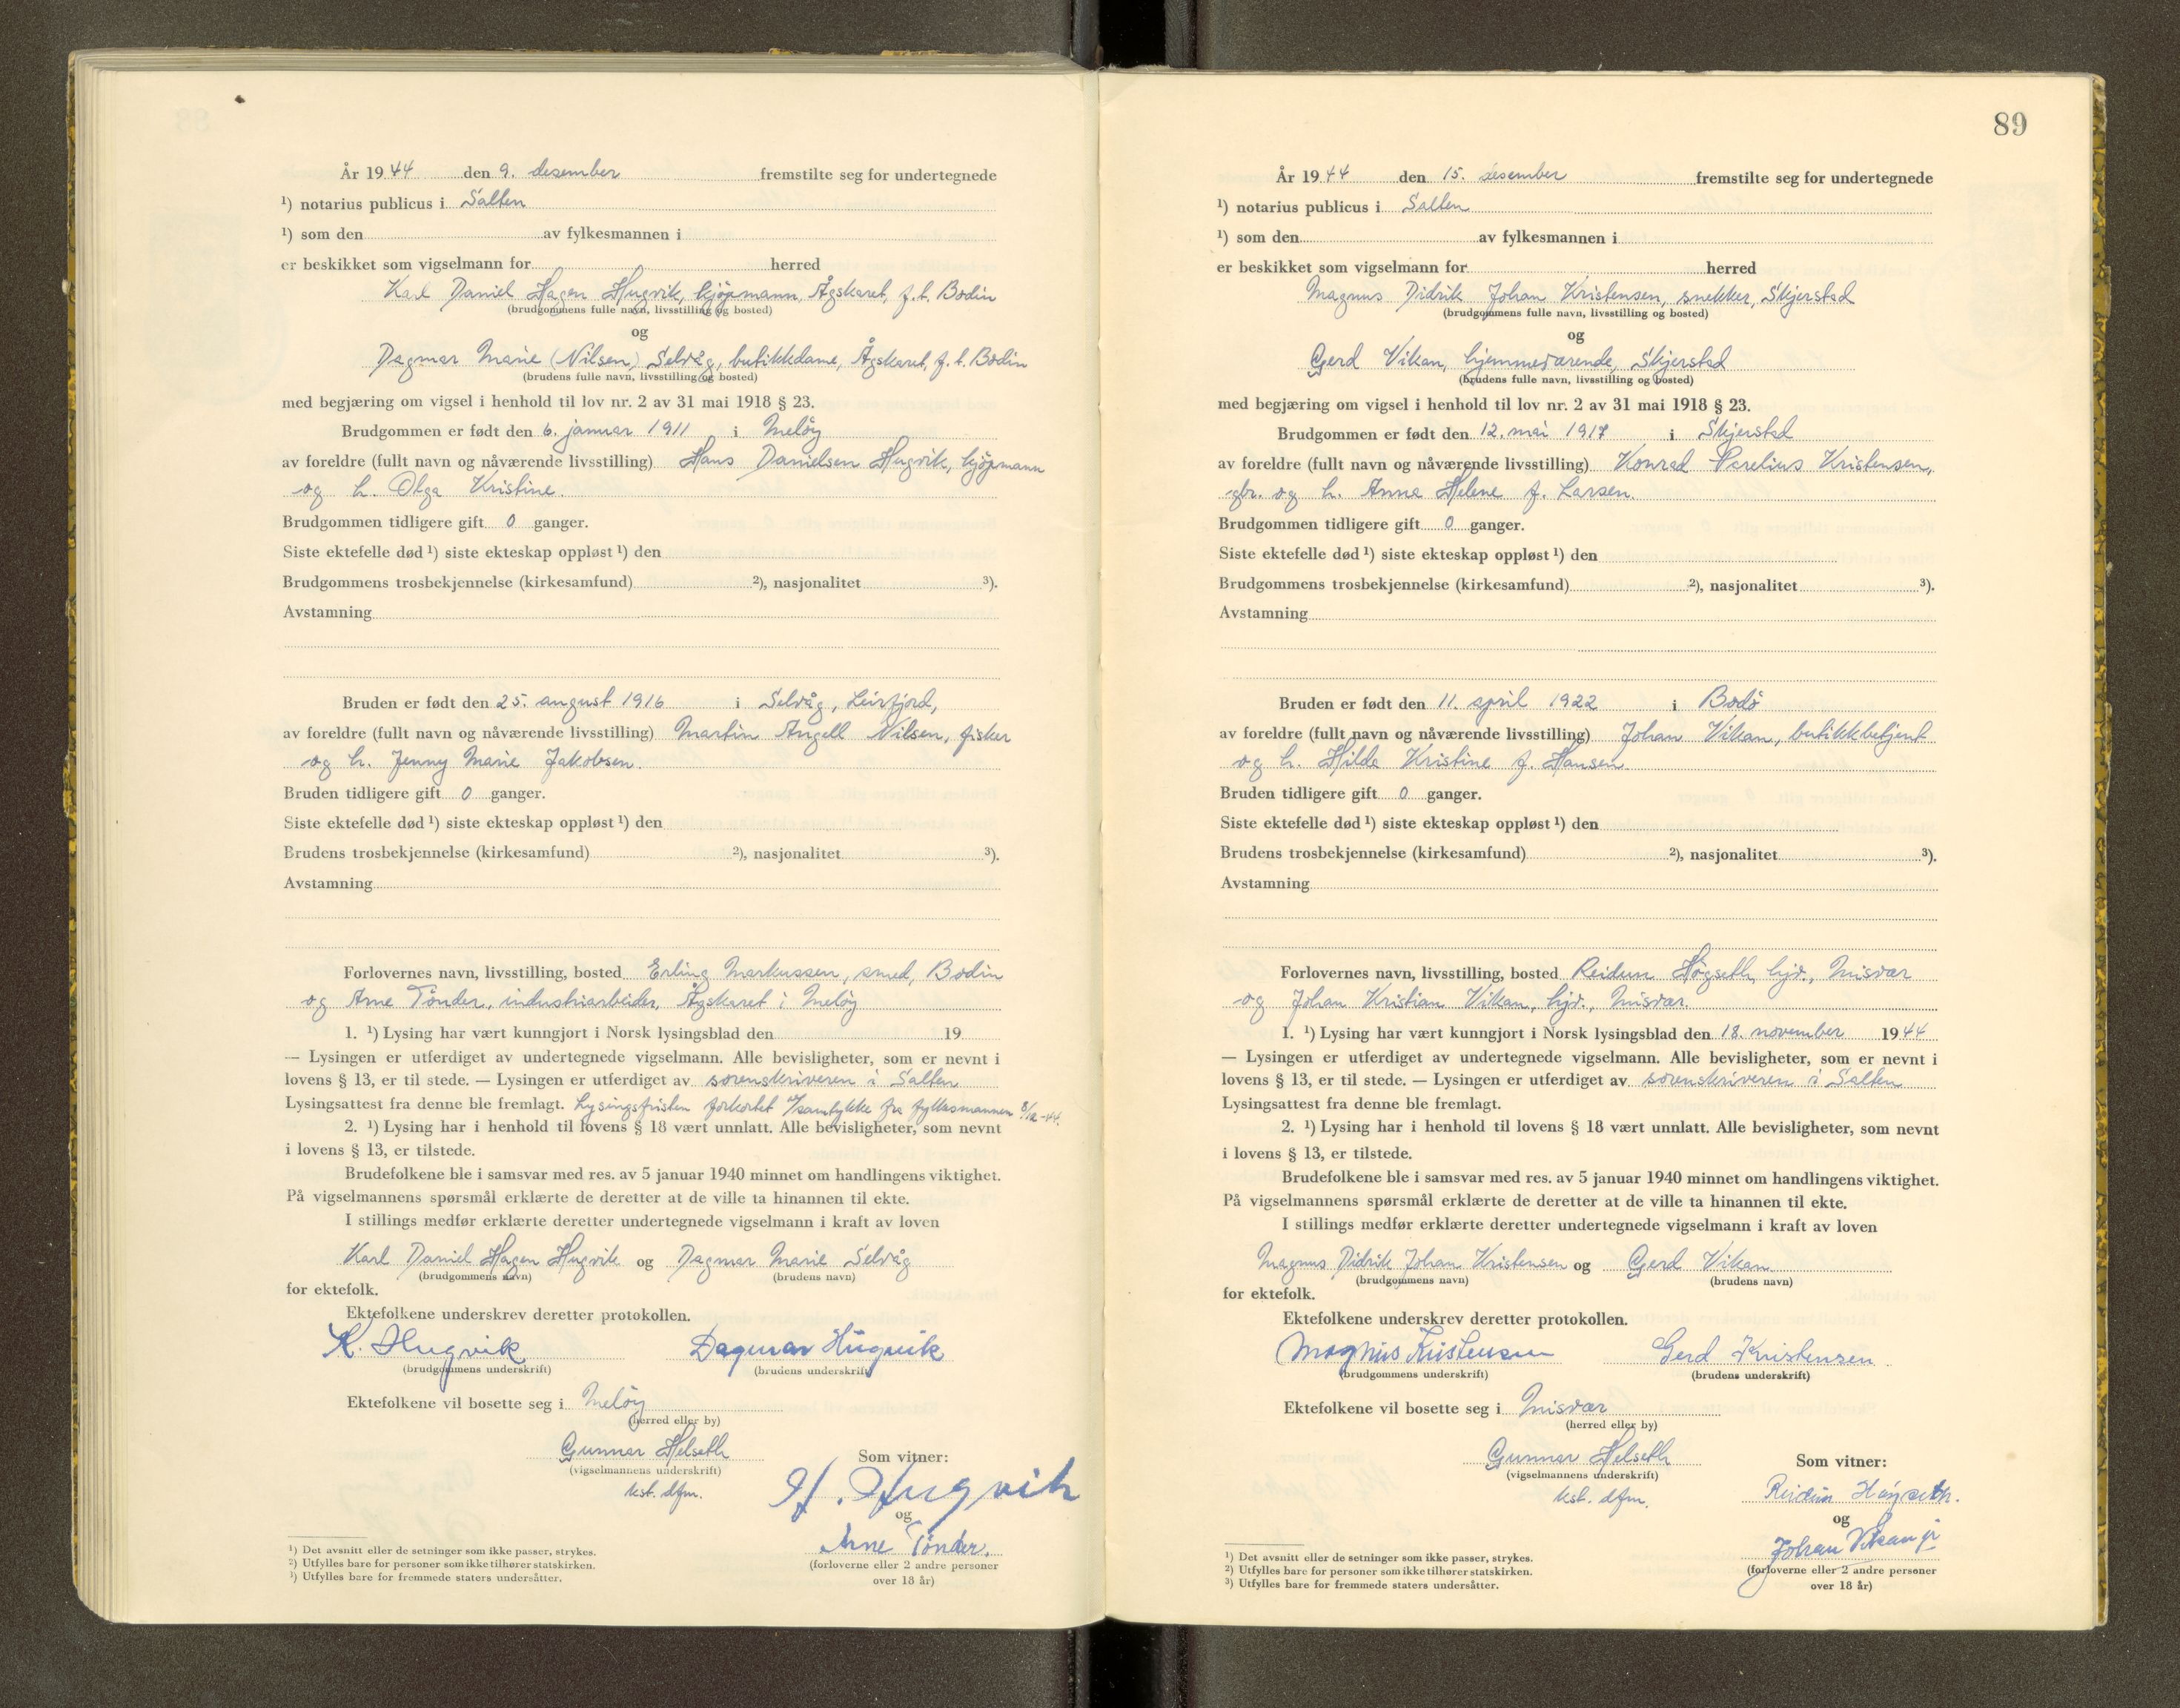 År 1944 den 9. desember fremstilte seg for undertegnede
¹) notarius publicus i Salten
¹) som den av fylkesmannen i
er beskikket som vigselmann for herred
Karl Daniel Hagen Hugvik, kjöpmann, Ågskaret, f.t. Bodin
(brudgommens fulle navn, livsstilling og bosted)
og
Dagmar Marie (Nilsen) Selvåg, butikkdame, Ågskaret, f.t. Bodin
(brudens fulle navn, livsstilling og bosted)
med begjæring om vigsel i henhold til lov nr. 2 av 31 mai 1918 § 23.
Brudgommen er født den 6. januar 1911 i Melöy
av foreldre (fullt navn og nåværende livsstilling) Hans Danielsen Hugvik, kjöpmann
og h. Olga Kristine.
Brudgommen tidligere gift 0 ganger.
Siste ektefelle død ¹) siste ekteskap oppløst ¹) den
Brudgommens trosbekjennelse (kirkesamfund) ²), nasjonalitet ³).
Avstamning
Bruden er født den 25. august 1916 i Selvåg, Leirfjord,
av foreldre (fullt navn og nåværende livsstilling) Martin Angell Nilsen, fisker
og h. Jenny Marie Jakobsen.
Bruden tidligere gift 0 ganger.
Siste ektefelle død ¹) siste ekteskap oppløst ¹) den
Brudens trosbekjennelse (kirkesamfund) ²), nasjonalitet ³).
Avstamning
Forlovernes navn, livsstilling, bosted Erling Markussen, smed, Bodin
og Arne Tönder, industriarbeider, Ågskaret i Melöy
1. ¹) Lysing har vært kunngjort i Norsk lysingsblad den 19
— Lysingen er utferdiget av undertegnede vigselmann. Alle bevisligheter, som er nevnt i
lovens § 13, er til stede. — Lysingen er utferdiget av sorenskriveren i Salten
Lysingsattest fra denne ble fremlagt. Lysingsfristen forkortet v/samtykke fra fylkesmannen 8/12-44.
2. ¹) Lysing har i henhold til lovens § 18 vært unnlatt. Alle bevisligheter, som nevnt
i lovens § 13, er tilstede.
Brudefolkene ble i samsvar med res. av 5 januar 1940 minnet om handlingens viktighet.
På vigselmannens spørsmål erklærte de deretter at de ville ta hinannen til ekte.
I stillings medfør erklærte deretter undertegnede vigselmann i kraft av loven
Karl Daniel Hagen Hugvik og Dagmar Marie Selvåg
(brudgommens navn) (brudens navn)
for ektefolk.
Ektefolkene underskrev deretter protokollen.
K. Hugvik Dagmar Hugvik
(brudgommens underskrift) (brudens underskrift)
Ektefolkene vil bosette seg i Melöy
(herred eller by)
Gunnar Helseth Som vitner:
(vigselmannens underskrift)
kst. dfm. H. Hugvik
og
Arne Tönder.
(forloverne eller 2 andre personer
over 18 år)
¹) Det avsnitt eller de setninger som ikke passer, strykes.
²) Utfylles bare for personer som ikke tilhører statskirken.
³) Utfylles bare for fremmede staters undersåtter.
89
År 1944 den 15. desember fremstilte seg for undertegnede
¹) notarius publicus i Salten
¹) som den av fylkesmannen i
er beskikket som vigselmann for herred
Magnus Didrik Johan Kristensen, snekker, Skjerstad
(brudgommens fulle navn, livsstilling og bosted)
og
Gerd Vikan, hjemmeværende, Skjerstad
(brudens fulle navn, livsstilling og bosted)
med begjæring om vigsel i henhold til lov nr. 2 av 31 mai 1918 § 23.
Brudgommen er født den 12. mai 1917 i Skjerstad
av foreldre (fullt navn og nåværende livsstilling) Konrad Parelius Kristensen,
gbr. og h. Anna Helene f. Larsen.
Brudgommen tidligere gift 0 ganger.
Siste ektefelle død ¹) siste ekteskap oppløst ¹) den
Brudgommens trosbekjennelse (kirkesamfund) ²), nasjonalitet ³).
Avstamning
Bruden er født den 11. april 1922 i Bodö
av foreldre (fullt navn og nåværende livsstilling) Johan Vikan, butikkbetjent
og h. Hilda Kristine f. Hansen.
Bruden tidligere gift 0 ganger.
Siste ektefelle død ¹) siste ekteskap oppløst ¹) den
Brudens trosbekjennelse (kirkesamfund) ²), nasjonalitet ³).
Avstamning
Forlovernes navn, livsstilling, bosted Reidun Högseth, hjv., Misvær
og Johan Kristian Vikan, hjv., Misvær.
1. ¹) Lysing har vært kunngjort i Norsk lysingsblad den 18. november 1944
— Lysingen er utferdiget av undertegnede vigselmann. Alle bevisligheter, som er nevnt i
lovens § 13, er til stede. — Lysingen er utferdiget av sorenskriveren i Salten
Lysingsattest fra denne ble fremlagt.
2. ¹) Lysing har i henhold til lovens § 18 vært unnlatt. Alle bevisligheter, som nevnt
i lovens § 13, er tilstede.
Brudefolkene ble i samsvar med res. av 5 januar 1940 minnet om handlingens viktighet.
På vigselmannens spørsmål erklærte de deretter at de ville ta hinannen til ekte.
I stillings medfør erklærte deretter undertegnede vigselmann i kraft av loven
Magnus Didrik Johan Kristensen og Gerd Vikan
(brudgommens navn) (brudens navn)
for ektefolk.
Ektefolkene underskrev deretter protokollen.
Magnus Kristensen Gerd Kristensen
(brudgommens underskrift) (brudens underskrift)
Ektefolkene vil bosette seg i Misvær
(herred eller by)
Gunnar Helseth Som vitner:
(vigselmannens underskrift)
kst. dfm. Reidun Högseth.
og
Johan Vikan jr
(forloverne eller 2 andre personer
over 18 år)
¹) Det avsnitt eller de setninger som ikke passer, strykes.
²) Utfylles bare for personer som ikke tilhører statskirken.
³) Utfylles bare for fremmede staters undersåtter.